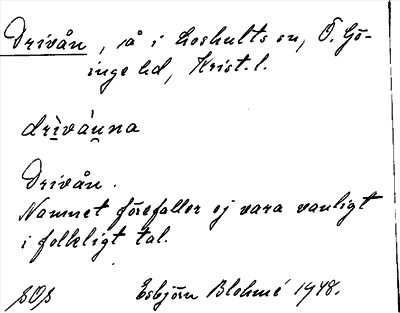 Drivån, å i Loshults sn, Ö. Gö-
inge hd, Krist. l.
drìvá̀nna
Drivån.
Namnet förefaller ej vara vanligt
i folkligt tal.
SOS Esbjörn Blohmé 1948.